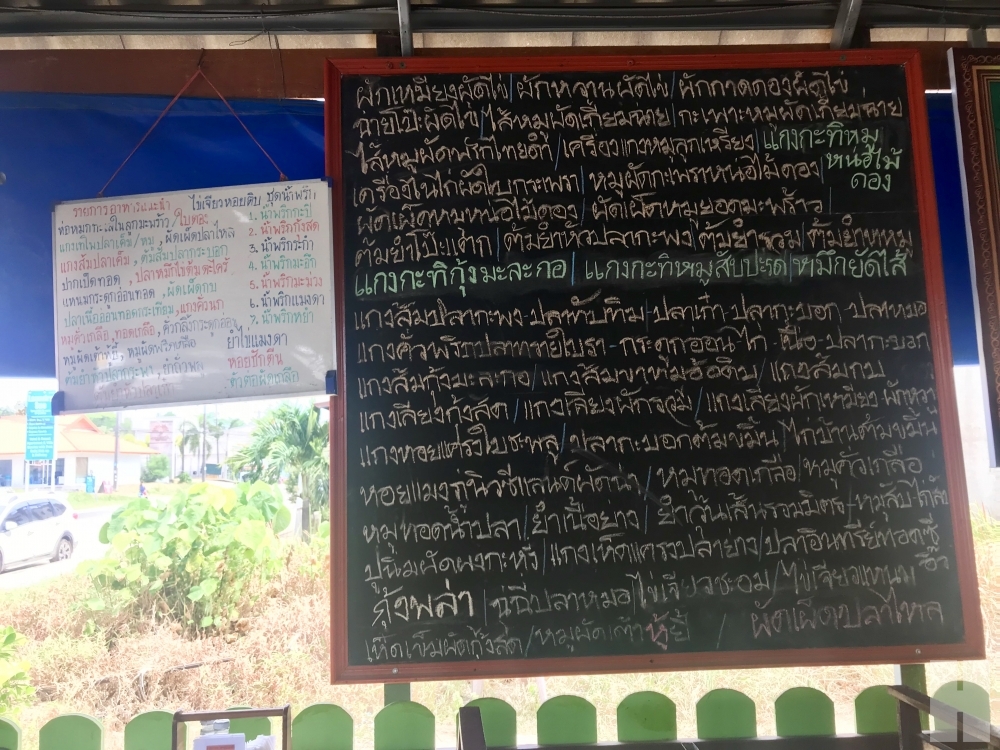 รายการอาหารแนะนำ ไข่เจียวหอยดิบ ชุดน้ำพริก
ห่อหมกทะเลในลูกมะพร้าว/ใบตอง
1. น้ำพริกกะปิ
แกงเทโพปลาเค็ม/หมู, ผัดเผ็ดปลาไหล
2. น้ำพริกกุ้งสด
แกงส้มปลาเค็ม, ต้มส้มปลากระบอก
3. น้ำพริกระกำ
ปากเป็ดทอด, ปลาหมึกไข่ต้มตะไคร้
4. น้ำพริกมะขิก
แหนมกระดูกอ่อนทอด, ผัดเผ็ดกบ
5. น้ำพริกมะม่วง
ปลาเนื้ออ่อนทอดกระเทียม, แกงคั่วนก
6. น้ำพริกแมงดา
หมูคั่วเกลือ, ทอดเกลือ, คั่วกลิ้งกระดูกอ่อน
7. น้ำพริกหยำ
ยำไข่แมงดา
หอยชักตีน
ผักเหมียงผัดไข่/ผักหวานผัดไข่/ผักกาดดองผัดไข่
ฉ่ายโป๊ะผัดไข่/ไส้หมูผัดเกี้ยมฉ่าย/กะเพาะหมูผัดเกี้ยมฉ่าย
ไส้หมูผัดพริกไทยดำ/เครื่องแกงหมูลูกเหรียง/แกงกะทิหมูหน่อไม้ดอง
เครื่องในไก่ผัดใบกระเพรา/หมูผัดกะเพราหน่อไม้ดอง
ผัดเผ็ดหมูหน่อไม้ดอง/ผัดเผ็ดหมูยอดมะพร้าว
ต้มยำโป๊ะแตก/ต้มยำหัวปลากะพง/ต้มยำรวม/ต้มยำขาหมู
แกงกะทิกุ้งมะละกอ/แกงกะทิหมูสับปะรด/หมึกยัดไส้
แกงส้มปลากะพง-ปลาทับทิม-ปลาเก๋า-ปลากะบอก-ปลาหมอ
แกงคั่วพริกปลา กระดูกอ่อน-ไก่-เนื้อ-ปลากะบอก
แกงส้มกุ้งมะละกอ/แกงส้มขาหมูอ้อดิบ/แกงส้มกบ
แกงเลียงกุ้งสด/แกงเลียงผักรวม/แกงเลียงผักเหมียง ผักหวาน
แกงหอยแครงใบชะพลู/ปลากะบอกต้มขมิ้น/ไก่บ้านต้มขมิ้น
หอยแมงภู่นิวซีแลนด์ผัดฉ่า/หมูทอดเกลือ/หมูคั่วเกลือ
หมูทอดน้ำปลา/ยำเนื้อย่าง/ยำวุ้นเส้นรวมมิตร-หมูสับ
ปูนิ่มผัดผงกะหรี่/แกงเห็ดแครงปลาย่าง/ปลาอินทรีย์ทอดซีอิ๊ว
กุ้งพล่า/ฉู่ฉี่ปลาหมอ/ไข่เจียวชะอม/ไข่เจียวแหนม
เห็ดเข็มผัดกุ้งสด/หมูผัดเต้าหู้ยี้ / ผัดเผ็ดปลาไหล